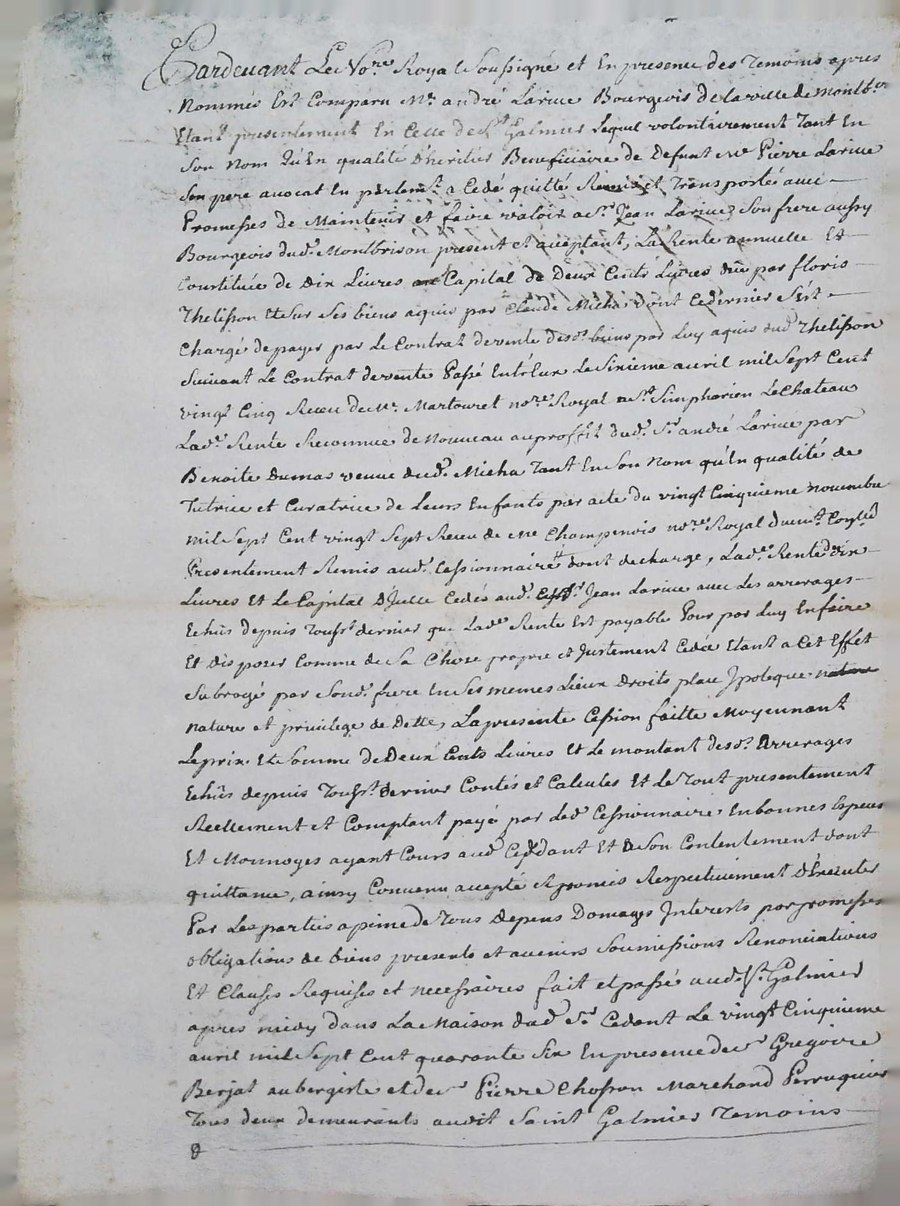 Pardevant Le No.re Royal Soussigné et En presence des Temoins apres
Nommés Est Comparu Mr. andré Larive Bourgeois de la ville de montb.on
Etant presentement En Celle de St Galmier Lequel volontairement Tant En
Son Nom Qu'En qualité d'heritier Beneficiaire de Defunt me Pierre Larive
Son pere avocat En parlem.t a Cedé quitté Remis et Transporté avec
Promesses de Maintenir et faire valoir a Sr. Jean Larive Son frere aussy
Bourgeois dud. Montbrison present et aceptant, La Rente annuelle Et
Constituée de dix Livres au Capital de Deux Cents Livres due par floris
Thelisson Et Sur Ses biens aquis par Claude Micha dont Cedernier S'est
Chargé de payer par Le Contrat de vente desd. biens par Luy aquis dud. Thelisson
Suivant Le Contrat de vente Passé Entr'Eux Le Sixieme avril mil Sept Cent
vingt Cinq Receu de Mr. Martouret no.re Royal a St Simphorien Le Chateau
Lad.e Rente Reconnue de Nouveau au proffit dud. Sr. andré Larive par
Benoite Dumas veuve dud. Micha Tant En Son Nom qu'En qualité de
Tutrice et Curatrice de Leurs Enfants par acte du vingt Cinquieme novembre
mil Sept Cent vingt Sept Receu de me Champenois no.re Royal dument
Presentement Remis aud. Cessionnaire dont decharge, Lad.e Rente de dix
Livres Et Le Capital d'Jcelle Cedés aud. Sr. Jean Larive avec Les arrerages
Echûs depuis Touss.t dernier que Lad.e Rente Est payable Pour par Luy En faire
Et disposer Comme de Sa Chose propre et Justement Cedée Etant a Cet Effet
Subrogé par Sond. frere En Ses memes Lieux Droits place Jpoteque nature
nature et privilege de Dette, La presente Cession faitte Moyennant
Le prix Et Somme de Deux Cents Livres Et Le montant desd. Arrerages
Echûs depuis Touss.t Dernier Contés et Calculés Et Le Tout presentement
Reellement et Comptant payé par Led. Cessionnaire En bonnes Especes
Et Monnoyes ayant Cours aud. Cedant Et De Son Contentement dont
quittance, ainsy Convenu accepté Et promis Respectivement d'Executer
Par Les parties a peine de Tous Depens Domages Interets par promesses
obligations de biens presents et avenirs Soumissions Renonciations
Et Clauses Requises et necessaires fait et passé aud. St. Galmier
apres midy dans La Maison dud. Sr. Cedant Le vingt Cinquieme
avril mil Sept Cent quarante Six En presence de Sr Gregoire
Berjat aubergiste et de Sr Pierre Chosson Marchand Perruquier
Tous deux demeurants audit Saint Galmier Temoins